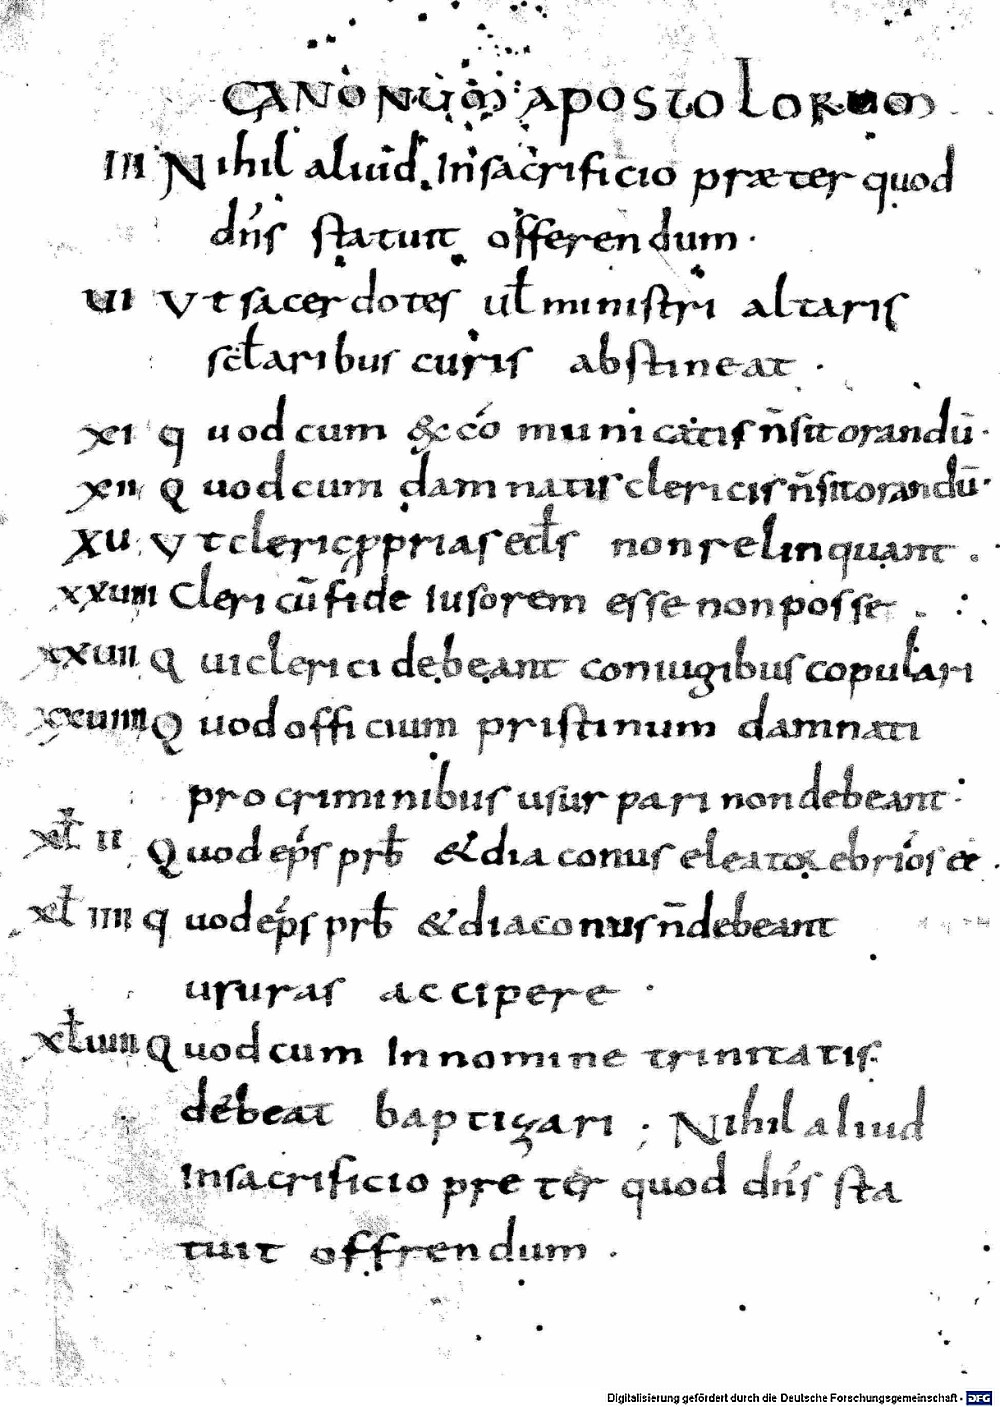 CANONUM APOSTOLORUM
III Nihil aliud In sacrificio præter quod
dn̄s statuit offerendum·
UI Ut sacerdotes ul̄ ministri altaris
sc̄laribus curis abstineat·
XI quod cum & có municatis n̄ sit orandū·
XII Quod cum damnatis clericis n̄ sit orandū·
XU Ut cleri ꝓprias ecl̄s non relinquant·
XXUIIII Cleri cū fide Iusorem esse non posse·
XXUII Qui clerici debeant coniugibus copulari
XXUIIII Quod officium pristinum damnati
pro criminibus usurpari non debeant·
XL II Quod ep̄s prb̄ & diaconus
XL IIII quod ep̄s prb̄ & diaconus n̄ debeant
usuras accipere·
XLUIIII Quod cum In nomine trinitatis·
debeat baptizari; Nihil aliud
In sacrificio preter quod dn̄s sta
tuit offrendum·
Digitalisierung gefördert durch die Deutsche Forschungsgemeinschaft - DFG